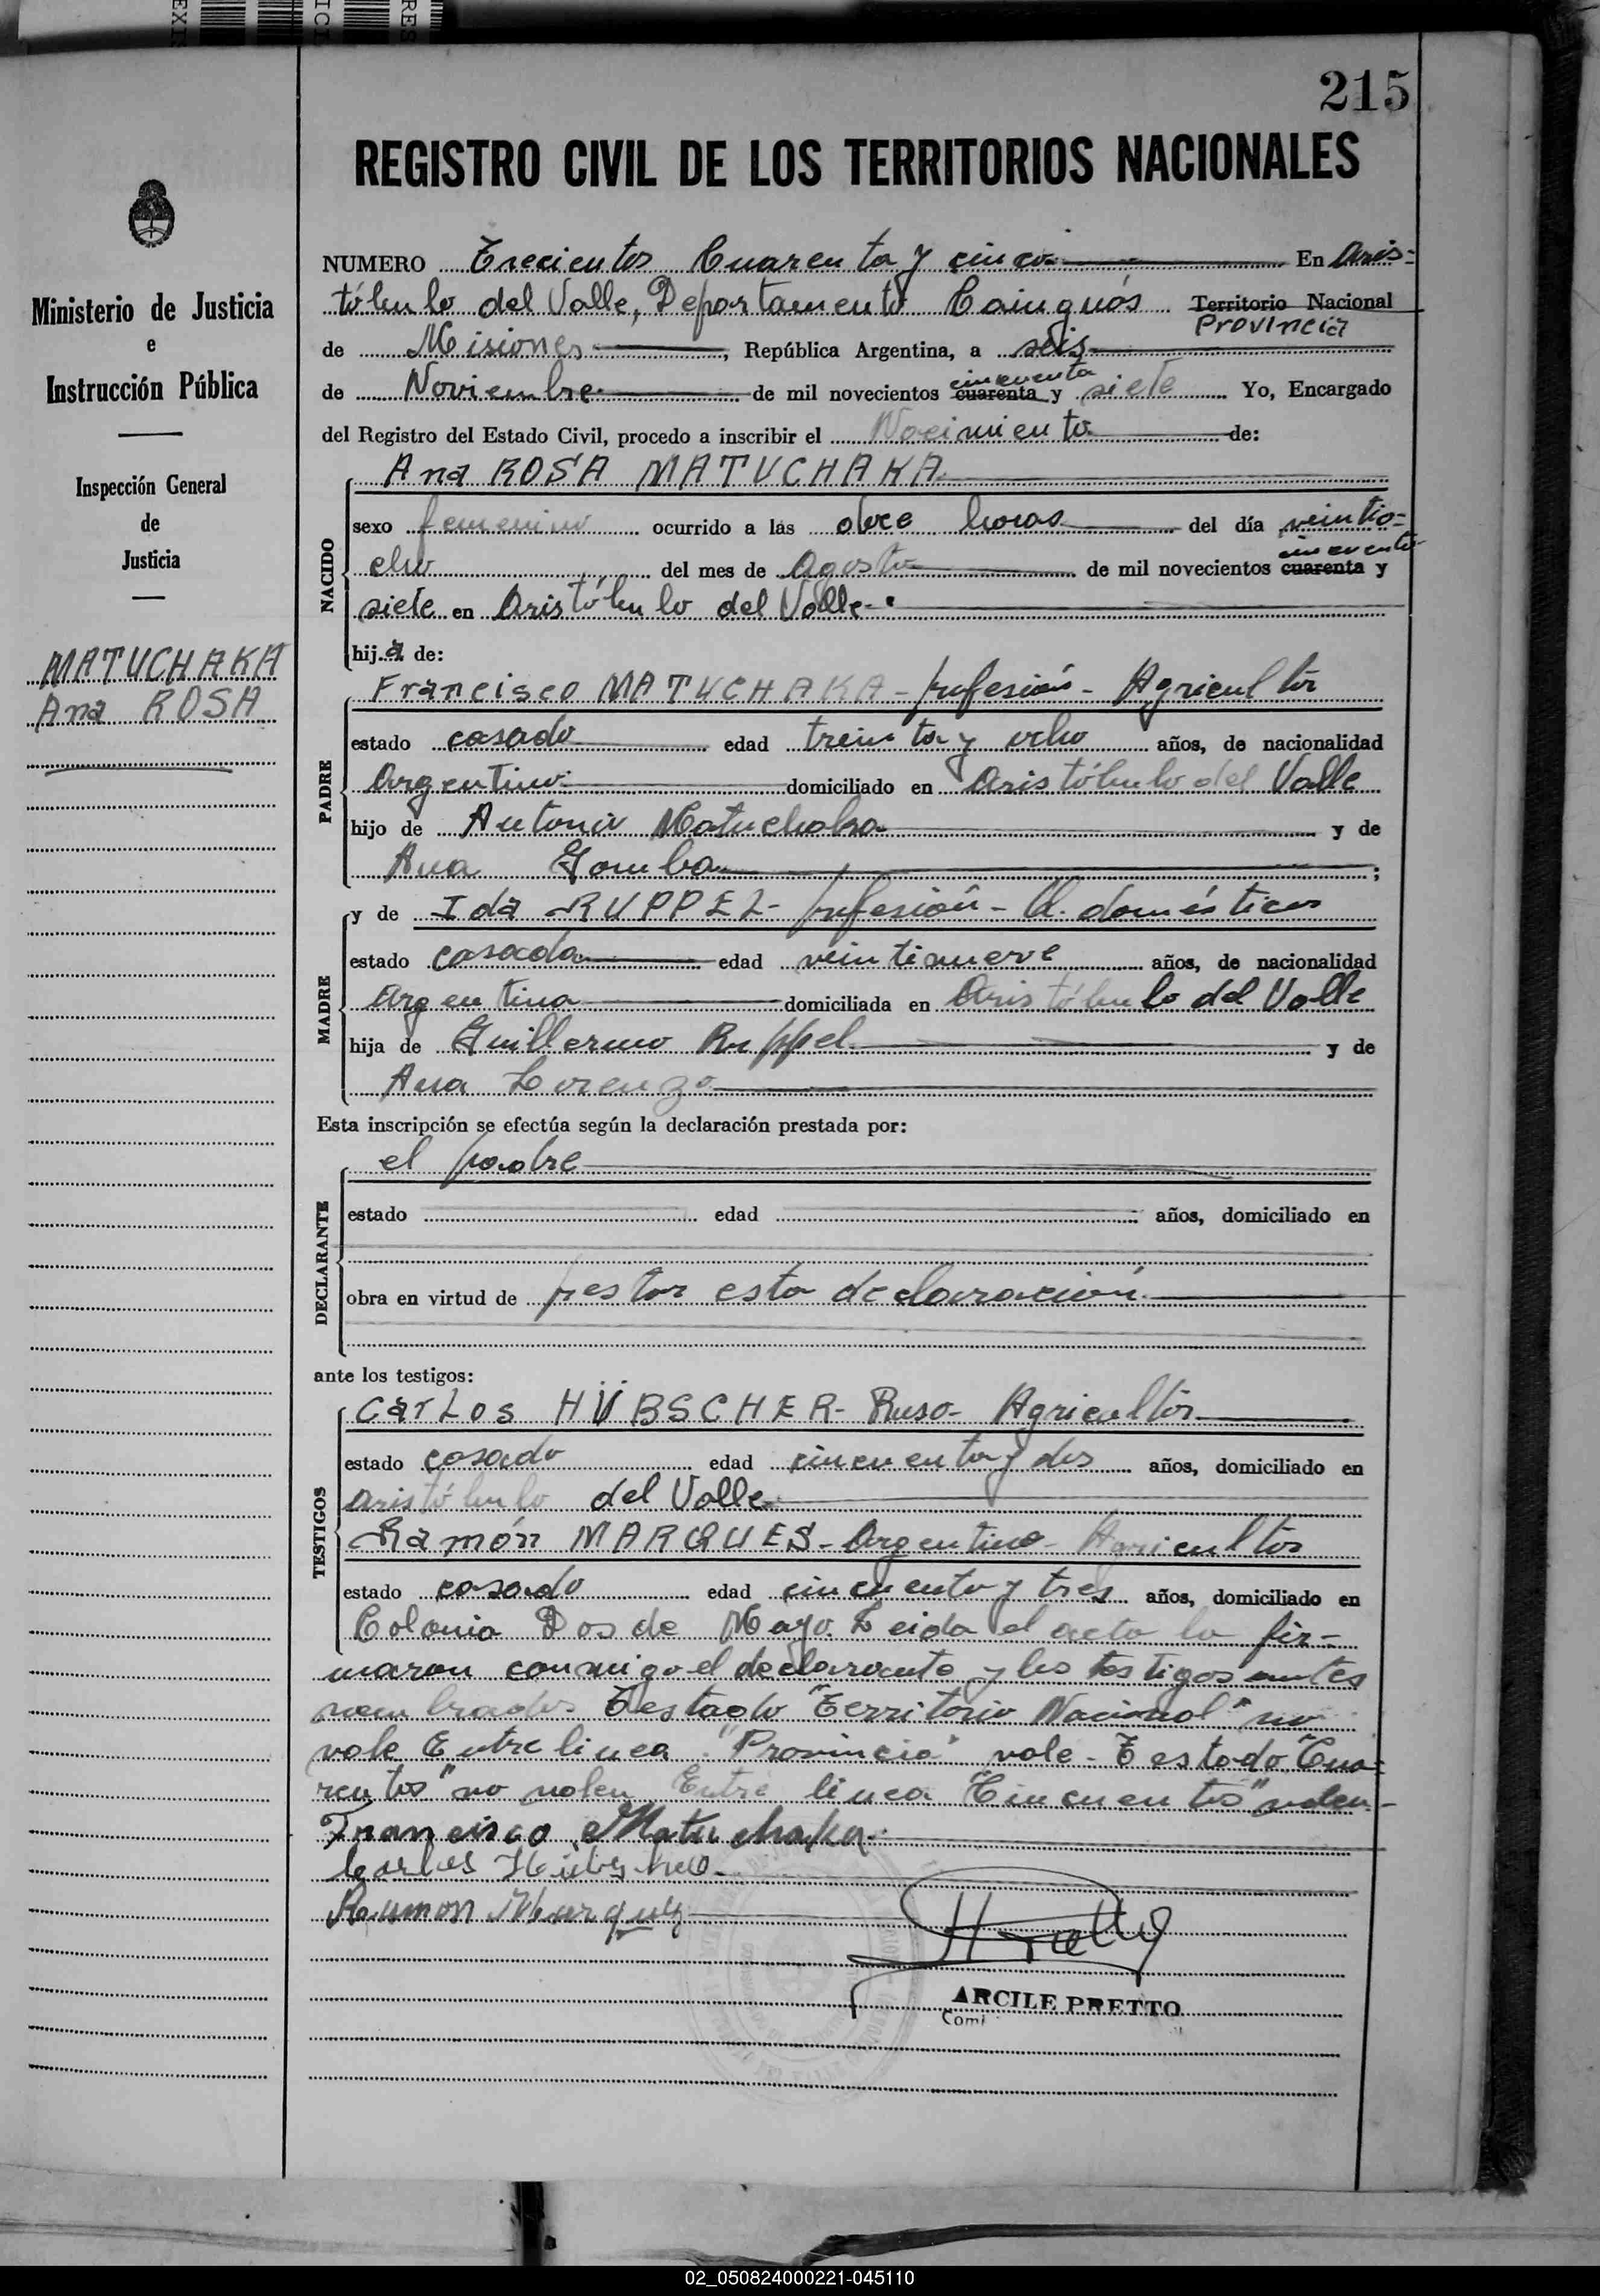 215
REGISTRO CIVIL DE LOS TERRITORIOS NACIONALES
Ministerio de Justicia
e
Instrucción Pública
Inspección General
de
Justicia
MATUCHAKA
Ana ROSA
NUMERO Trecientos Cuarenta y cinco En Aris-
tóbulo del Valle, Departamento Cainguás Territorio Nacional
Provincia
de Misiones, República Argentina, a seis
cincuenta
de Noviembre de mil novecientos cuarenta y siete Yo, Encargado
del Registro del Estado Civil, procedo a inscribir el Nacimiento de:
Ana ROSA MATUCHAKA
NACIDO
sexo femenino ocurrido a las doce horas del día veintio-
cincuenta
cho del mes de Agosto de mil novecientos cuarenta y
siete en Aristóbulo del Valle.
hija de:
PADRE
Francisco MATUCHAKA - profesión - Agricultor
estado casado edad treinta y ocho años, de nacionalidad
Argentino domiciliado en Aristóbulo del Valle
hijo de Antonio Matuchaka y de
Ana Gomba;
MADRE
y de Ida RUPPEL - profesión - Q. domésticos
estado casada edad veintinueve años, de nacionalidad
Argentina domiciliada en Aristóbulo del Valle
hija de Guillermo Ruppel y de
Ana Lorenzo
Esta inscripción se efectúa según la declaración prestada por:
DECLARANTE
el padre
estado edad años, domiciliado en
obra en virtud de prestar esta declaración
ante los testigos:
TESTIGOS
CarLos HÜBSCHER - Ruso - Agricultor
estado casado edad cincuenta y dos años, domiciliado en
Aristóbulo del Valle
Ramón MARQUES - Argentino - Agricultor
estado casado edad cincuenta y tres años, domiciliado en
Colonia Dos de Mayo. Leida el acta la fir-
maron conmigo el declarante y los testigos antes
nombrados. Testado "Territorio Nacional" no
vale Entre linea "Provincia" vale - Testado "Cua-
rentas" no valen Entre linea "Cincuentas" valen-
Francisco Matuchaka
Carlos
Ramon Marquez
ARCILE PRETTO
Comi
02_050824000221-045110